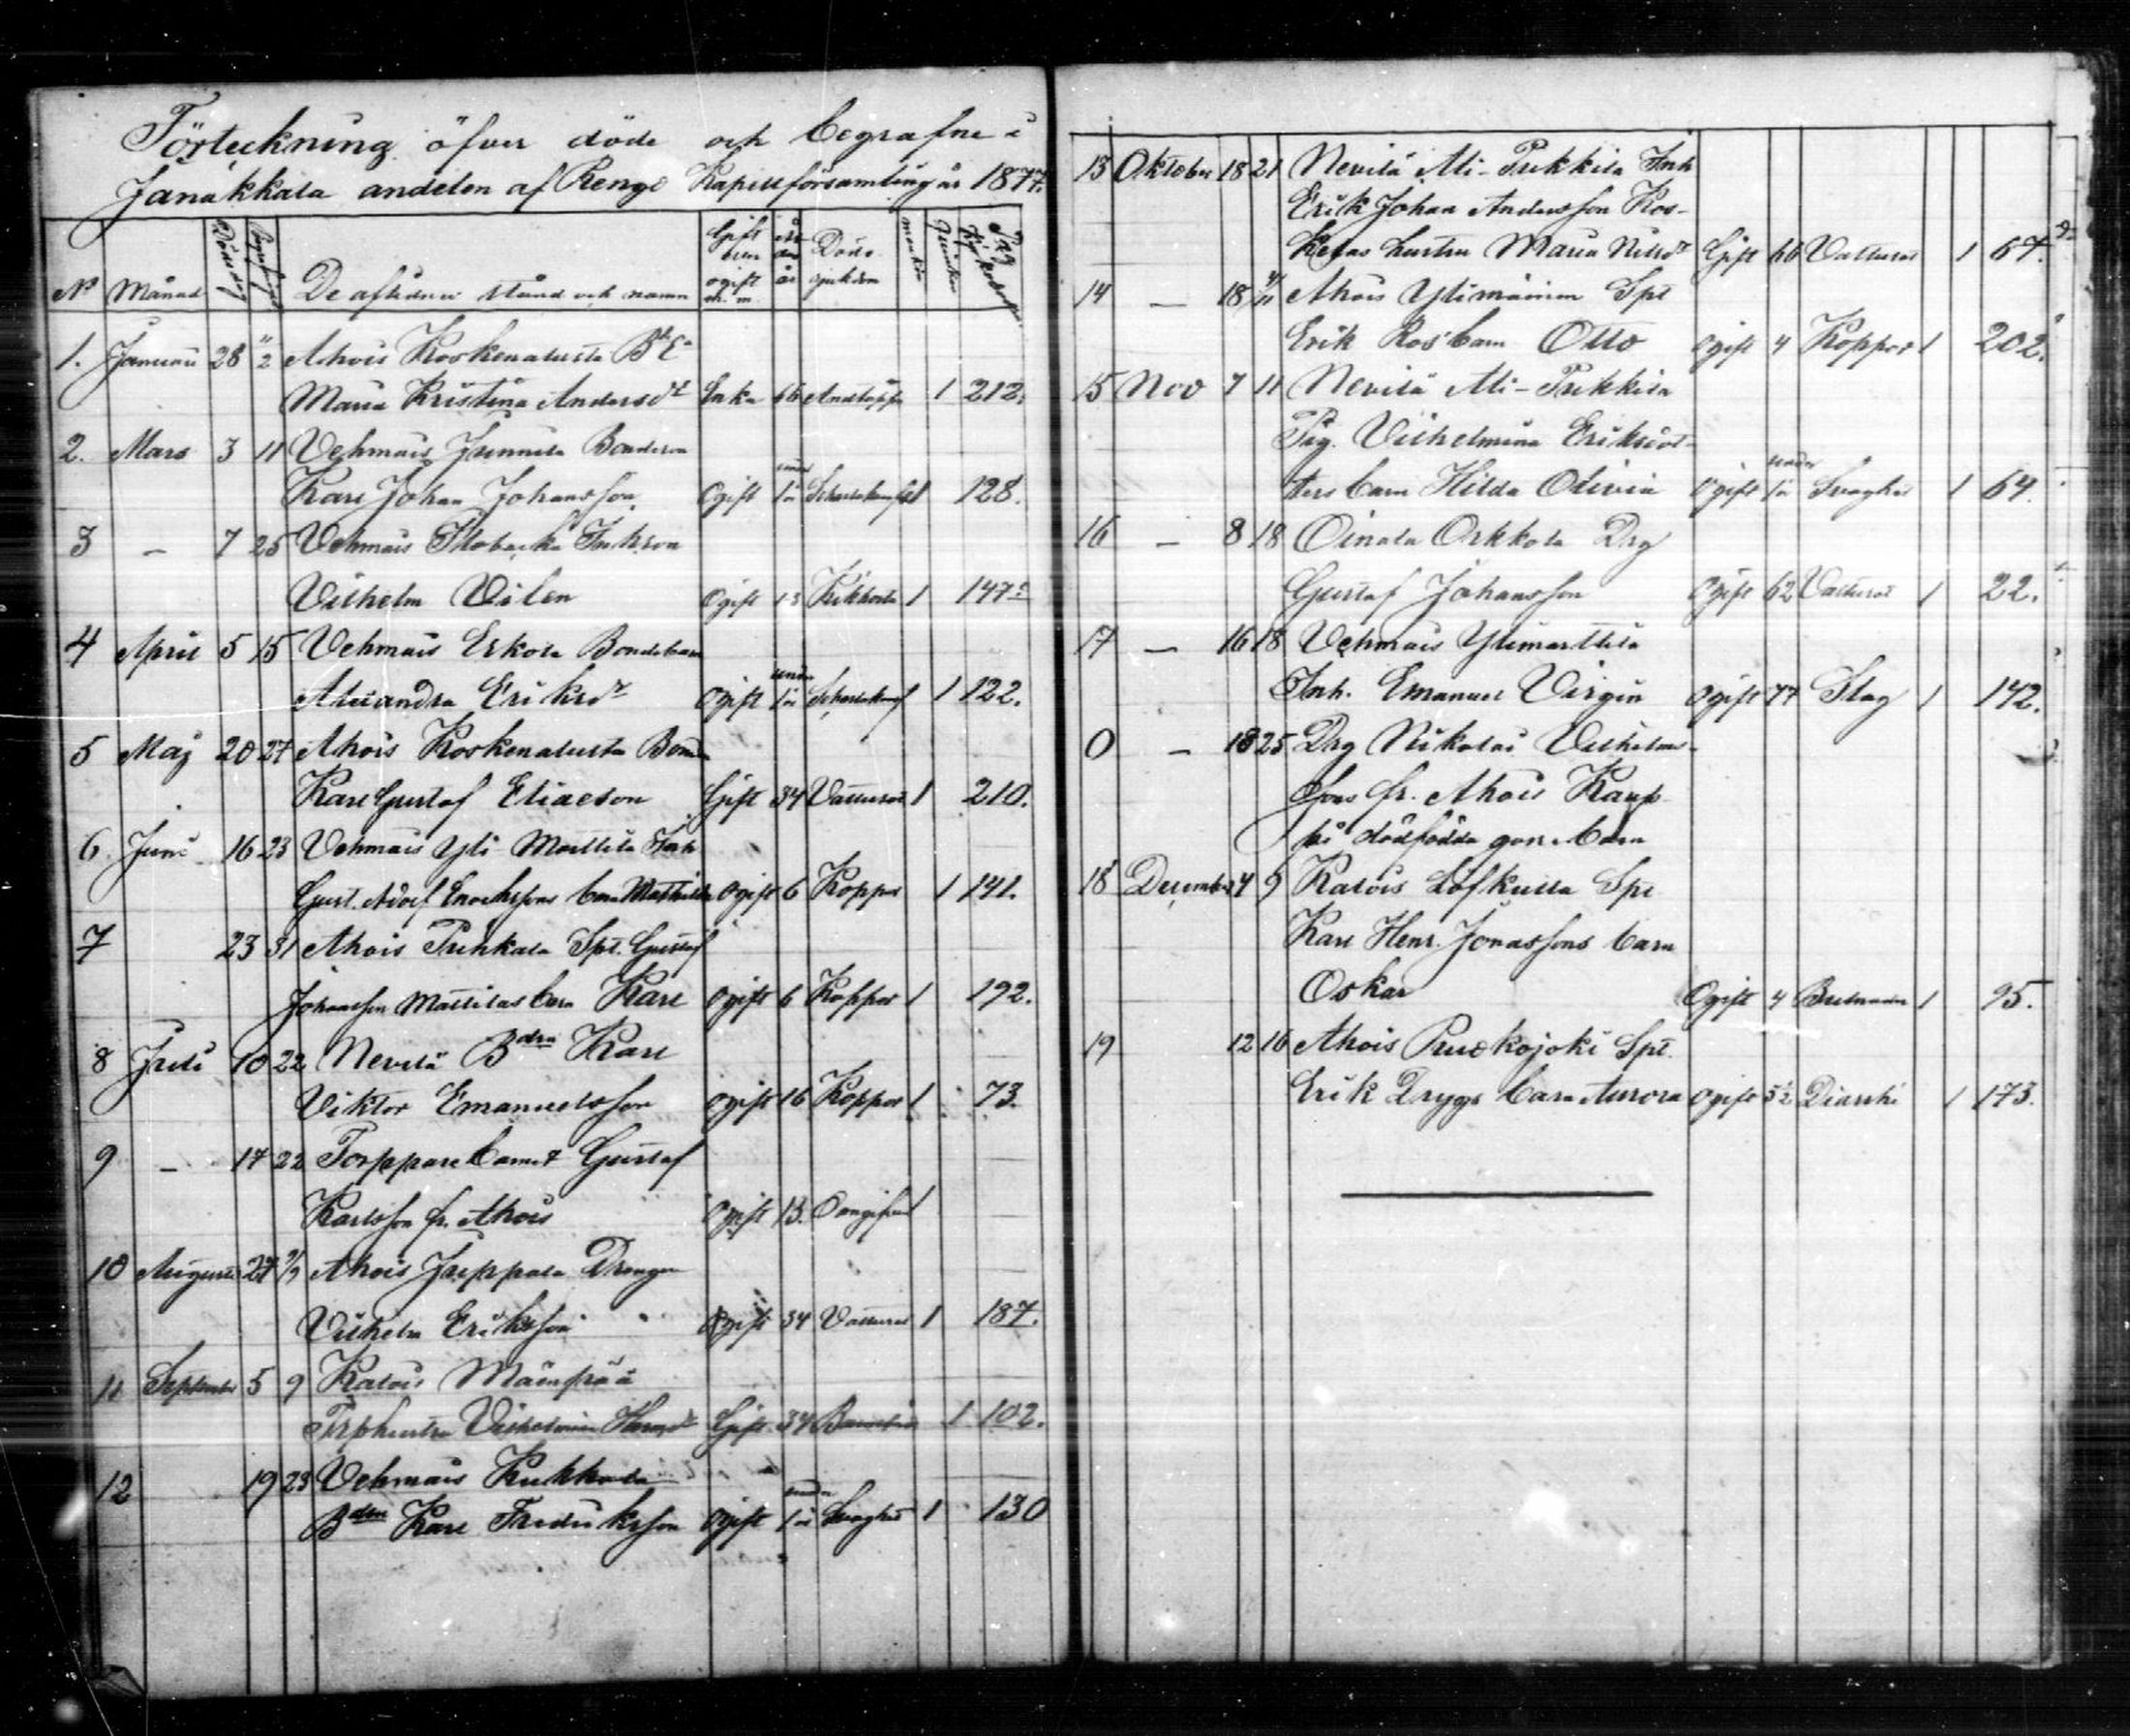 Förteckning öfver döde och begrafne i
Janakkala andelen af Rengo Kapellförsamling år 1877.
No Månad Dödsdag Begrafningsd De aflidnes stånd och namn Gift eller ogift m. m. Ålder år Döds sjukdom mankön qvinkön Pag Kyrkoboken
1. Januari 28 11/2 Ahois Koskenalusta Bde Ea
Maria Kristina Andersdr Enka 66 Andtäppa 1 212.
2. Mars 3 11 Vehmais Junnila Bondeson
Karl Johan Johansson Ogift under 1 år 1 128.
3 — 7 25 Vehmais Inhson
Vilhelm Vilen Ogift 13 Kikhosta 1 147.
4 April 5 15 Vehmais Erkola Bondebarn
Alexandra Eriksdr Ogift under 1 år 1 122.
5 Maj 20 27 Ahois Koskenalusta Bond
Karl Gustaf Eliaeson Gift 34 Vattusot 1 210.
6. Juni 16 23 Vehmais Yli Marttila Inh
Gust. Adolf Enochssons barn Mathilda Ogift 6 Koppor 1 141.
7 23 31 Ahois Puhkala Spt. Gustaf
Johansson Mattilas barn Karl Ogift 6 Koppor 1 192.
8 Juli 10 22 Nevilä Bdson Karl
Viktor Emanuelsson Ogift 16 Koppor 1 73.
9 — 17 22 Torppare barnet Gustaf
Karlsson fr. Ahois Ogift 13. Oangifven 1
10 Augusti 27 2/9 Ahois Juppala Drengen
Vilhelm Eriksson Ogift 34 Vattusot 1 187.
11 September 5 9 Kalois Mäenpää
Trphustru Vilhelmina Gift 34 Barnsbörd 1 102.
12 19 23 Vehmais Kukkola
Bdson Karl Fredriksson Ogift under 1 år Svaghet 1 130
13 Oktober 18 21 Nevilä Ali-Prikkilä Inh
Erik Johan Andersson Kos-
kelas hustru Maria Nilsdr Gift 66 Vattusot 1 67.
14 — 18 4/11 Ahois Ylimäinen Spt
Erik Ros barn Otto Ogift 4 Koppor 1 202.
15 Nov 7 11 Nevilä Ali-Prikkilä
Pig. Vilhelmina Eriksdot-
ters barn Hilda Olivia Ogift under 1 år Svaghet 1 64.
16 — 8 18 Oinala Orkkola Drg
Gustaf Johansson Ogift 62 Vattusot 1 22.
17 — 16 18 Vehmais Ylimarttila
Inh. Emanuel Virgin Ogift 77 Slag 1 142.
0 — 18 25 Drg Nikolai Vilhelms-
sons fr. Ahois Kaup-
pi dödfödda goss barn
18 December 4 9 Kalois Löfkulla Spt
Karl Henr. Jonassons barn
Oskar Ogift 4 1 95.
19 12 16 Ahois Ruokojoki Spt.
Erik Tryggs barn Aurora Ogift 5½ Diarrhé 1 173.